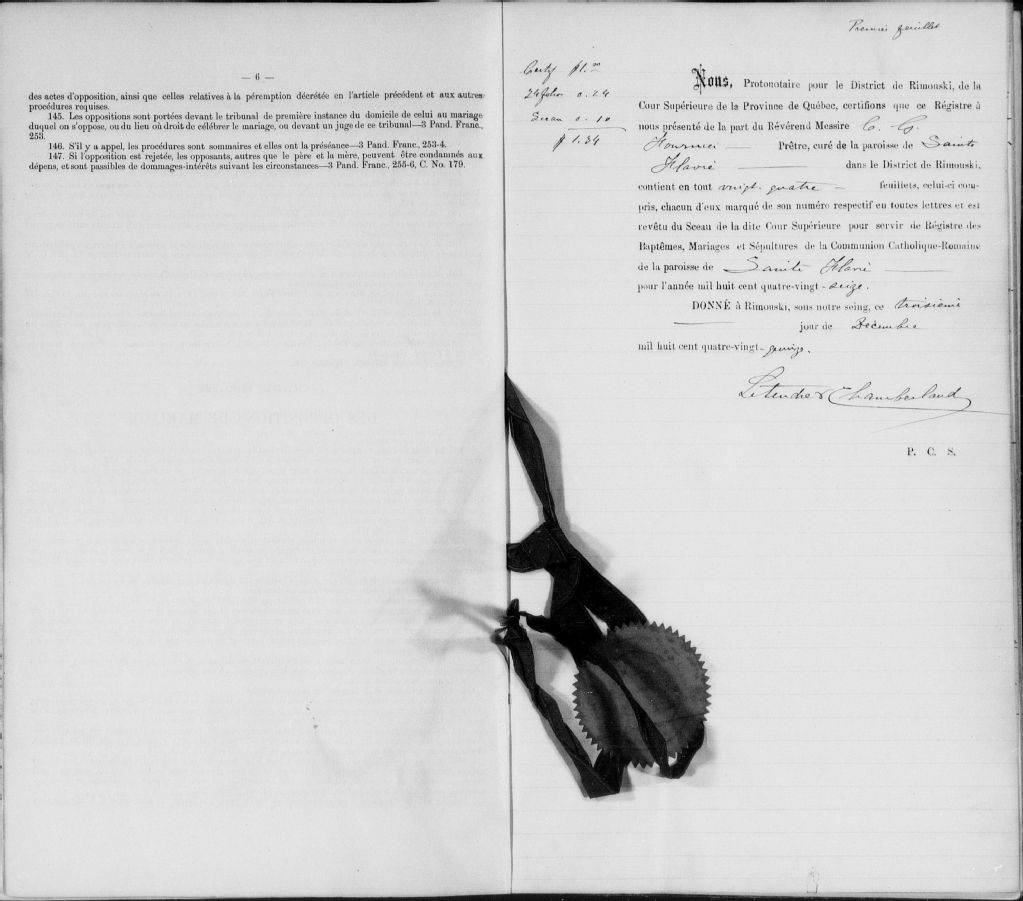 — 6 —
des actes d'opposition, ainsi que celles relatives à la péremption décrétée en l'article précédent et aux autres
procédures requises.
145. Les oppositions sont portées devant le tribunal de première instance du domicile de celui au mariage
duquel on s'oppose, ou du lieu où droit de célébrer le mariage, ou devant un juge de ce tribunal—3 Pand. Franc.,
253.
146. S'il y a appel, les procédures sont sommaires et elles ont la préséance—3 Pand. Franc., 253-4.
147. Si l'opposition est rejetée, les opposants, autres que le père et la mère, peuvent être condamnés aux
dépens, et sont passibles de dommages-intérêts suivant les circonstances—3 Pand. Franc., 255-6, C. No. 179.
Premier feuillet
Certif $1.00
24 folios 0.24
Sceau 0.10
$ 1.34
Nous, Protonotaire pour le District de Rimouski, de la
Cour Supérieure de la Province de Québec, certifions que ce Régistre à
nous présenté de la part du Révérend Messire C. G.
Fournier — Prêtre, curé de la paroisse de Sainte
Flavie — dans le District de Rimouski,
contient en tout vingt-quatre — feuillets, celui-ci com-
pris, chacun d'eux marqué de son numéro respectif en toutes lettres et est
revêtu du Sceau de la dite Cour Supérieure pour servir de Régistre des
Baptêmes, Mariages et Sépultures de la Communion Catholique-Romaine
de la paroisse de Sainte Flavie —
pour l'année mil huit cent quatre-vingt-seize.
DONNÉ à Rimouski, sous notre seing, ce troisième
— jour de Décembre
mil huit cent quatre-vingt-quinze.
Letendre & Chamberland
P. C. S.